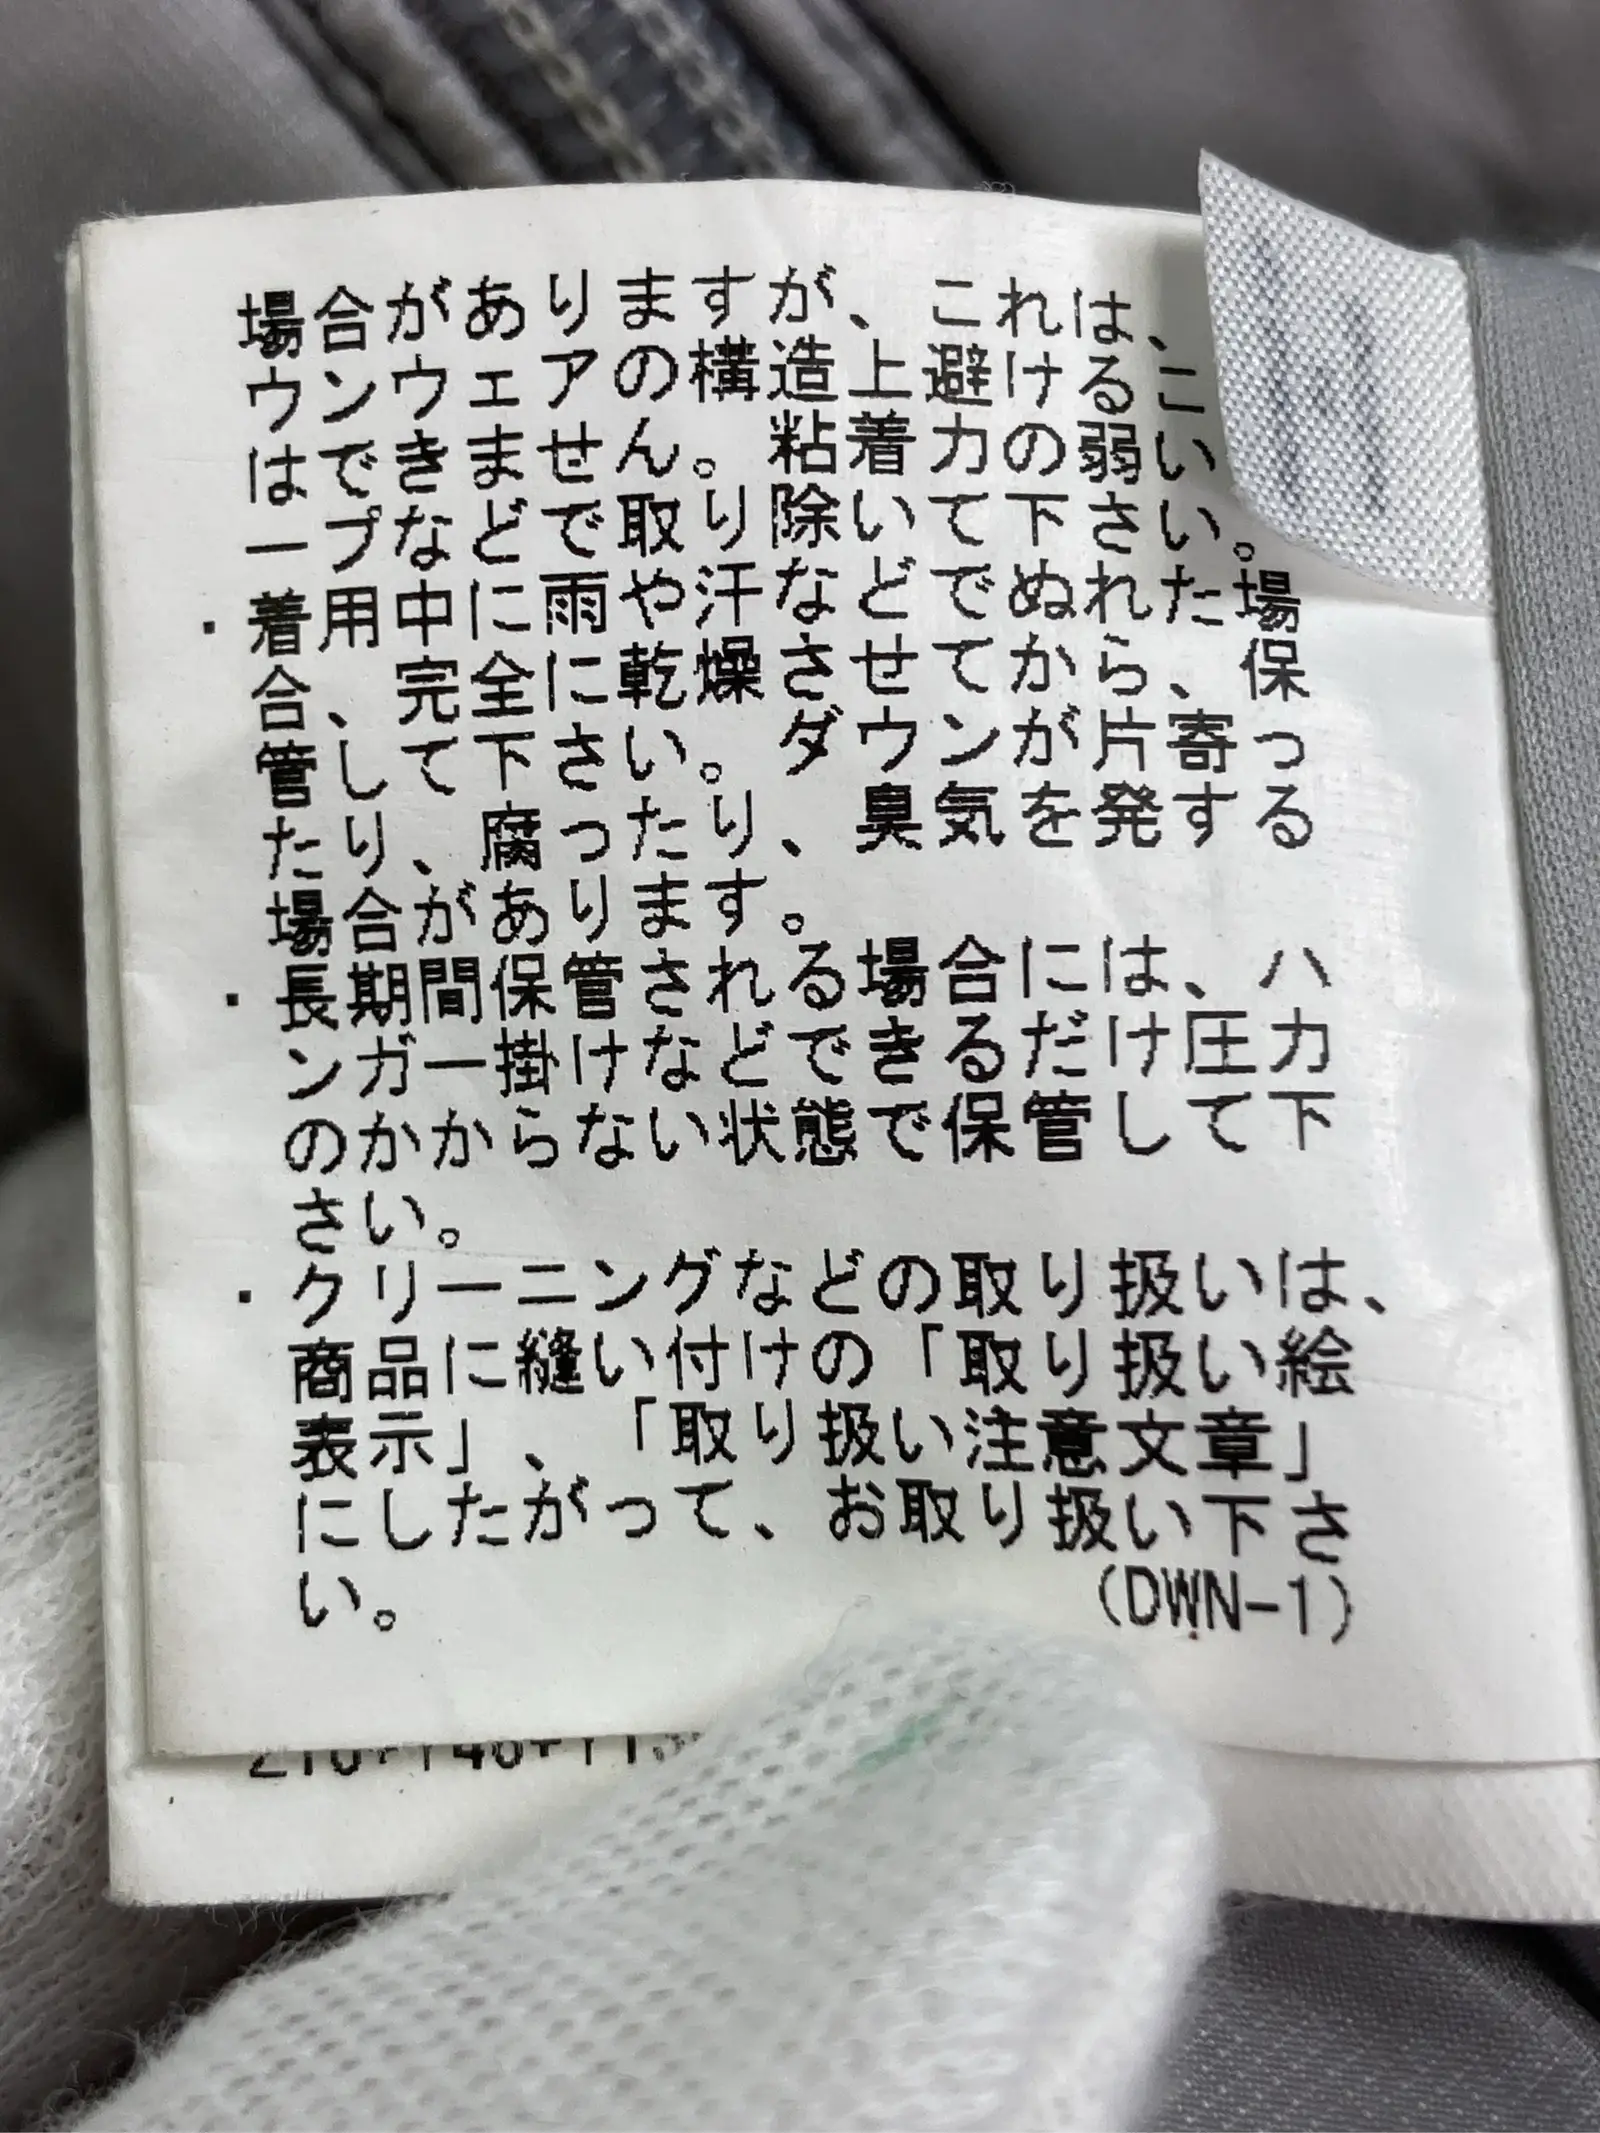 場合がありますが、これは、
ウンウェアの構造上避けるこ
はできません。粘着力の弱い
ープなどで取り除いて下さい。
・着用中に雨や汗などでぬれた場
合、完全に乾燥させてから、保
管して下さい。ダウンが片寄っ
たり、腐ったり、臭気を発する
場合があります。
・長期間保管される場合には、ハ
ンガー掛けなどでできるだけ圧力
のかからない状態で保管して下
さい。
・クリーニングなどの取り扱いは、
商品に縫い付けの「取り扱い絵
表示」、「取り扱い注意文章」
にしたがって、お取り扱い下さ
い。
(DWN-1)